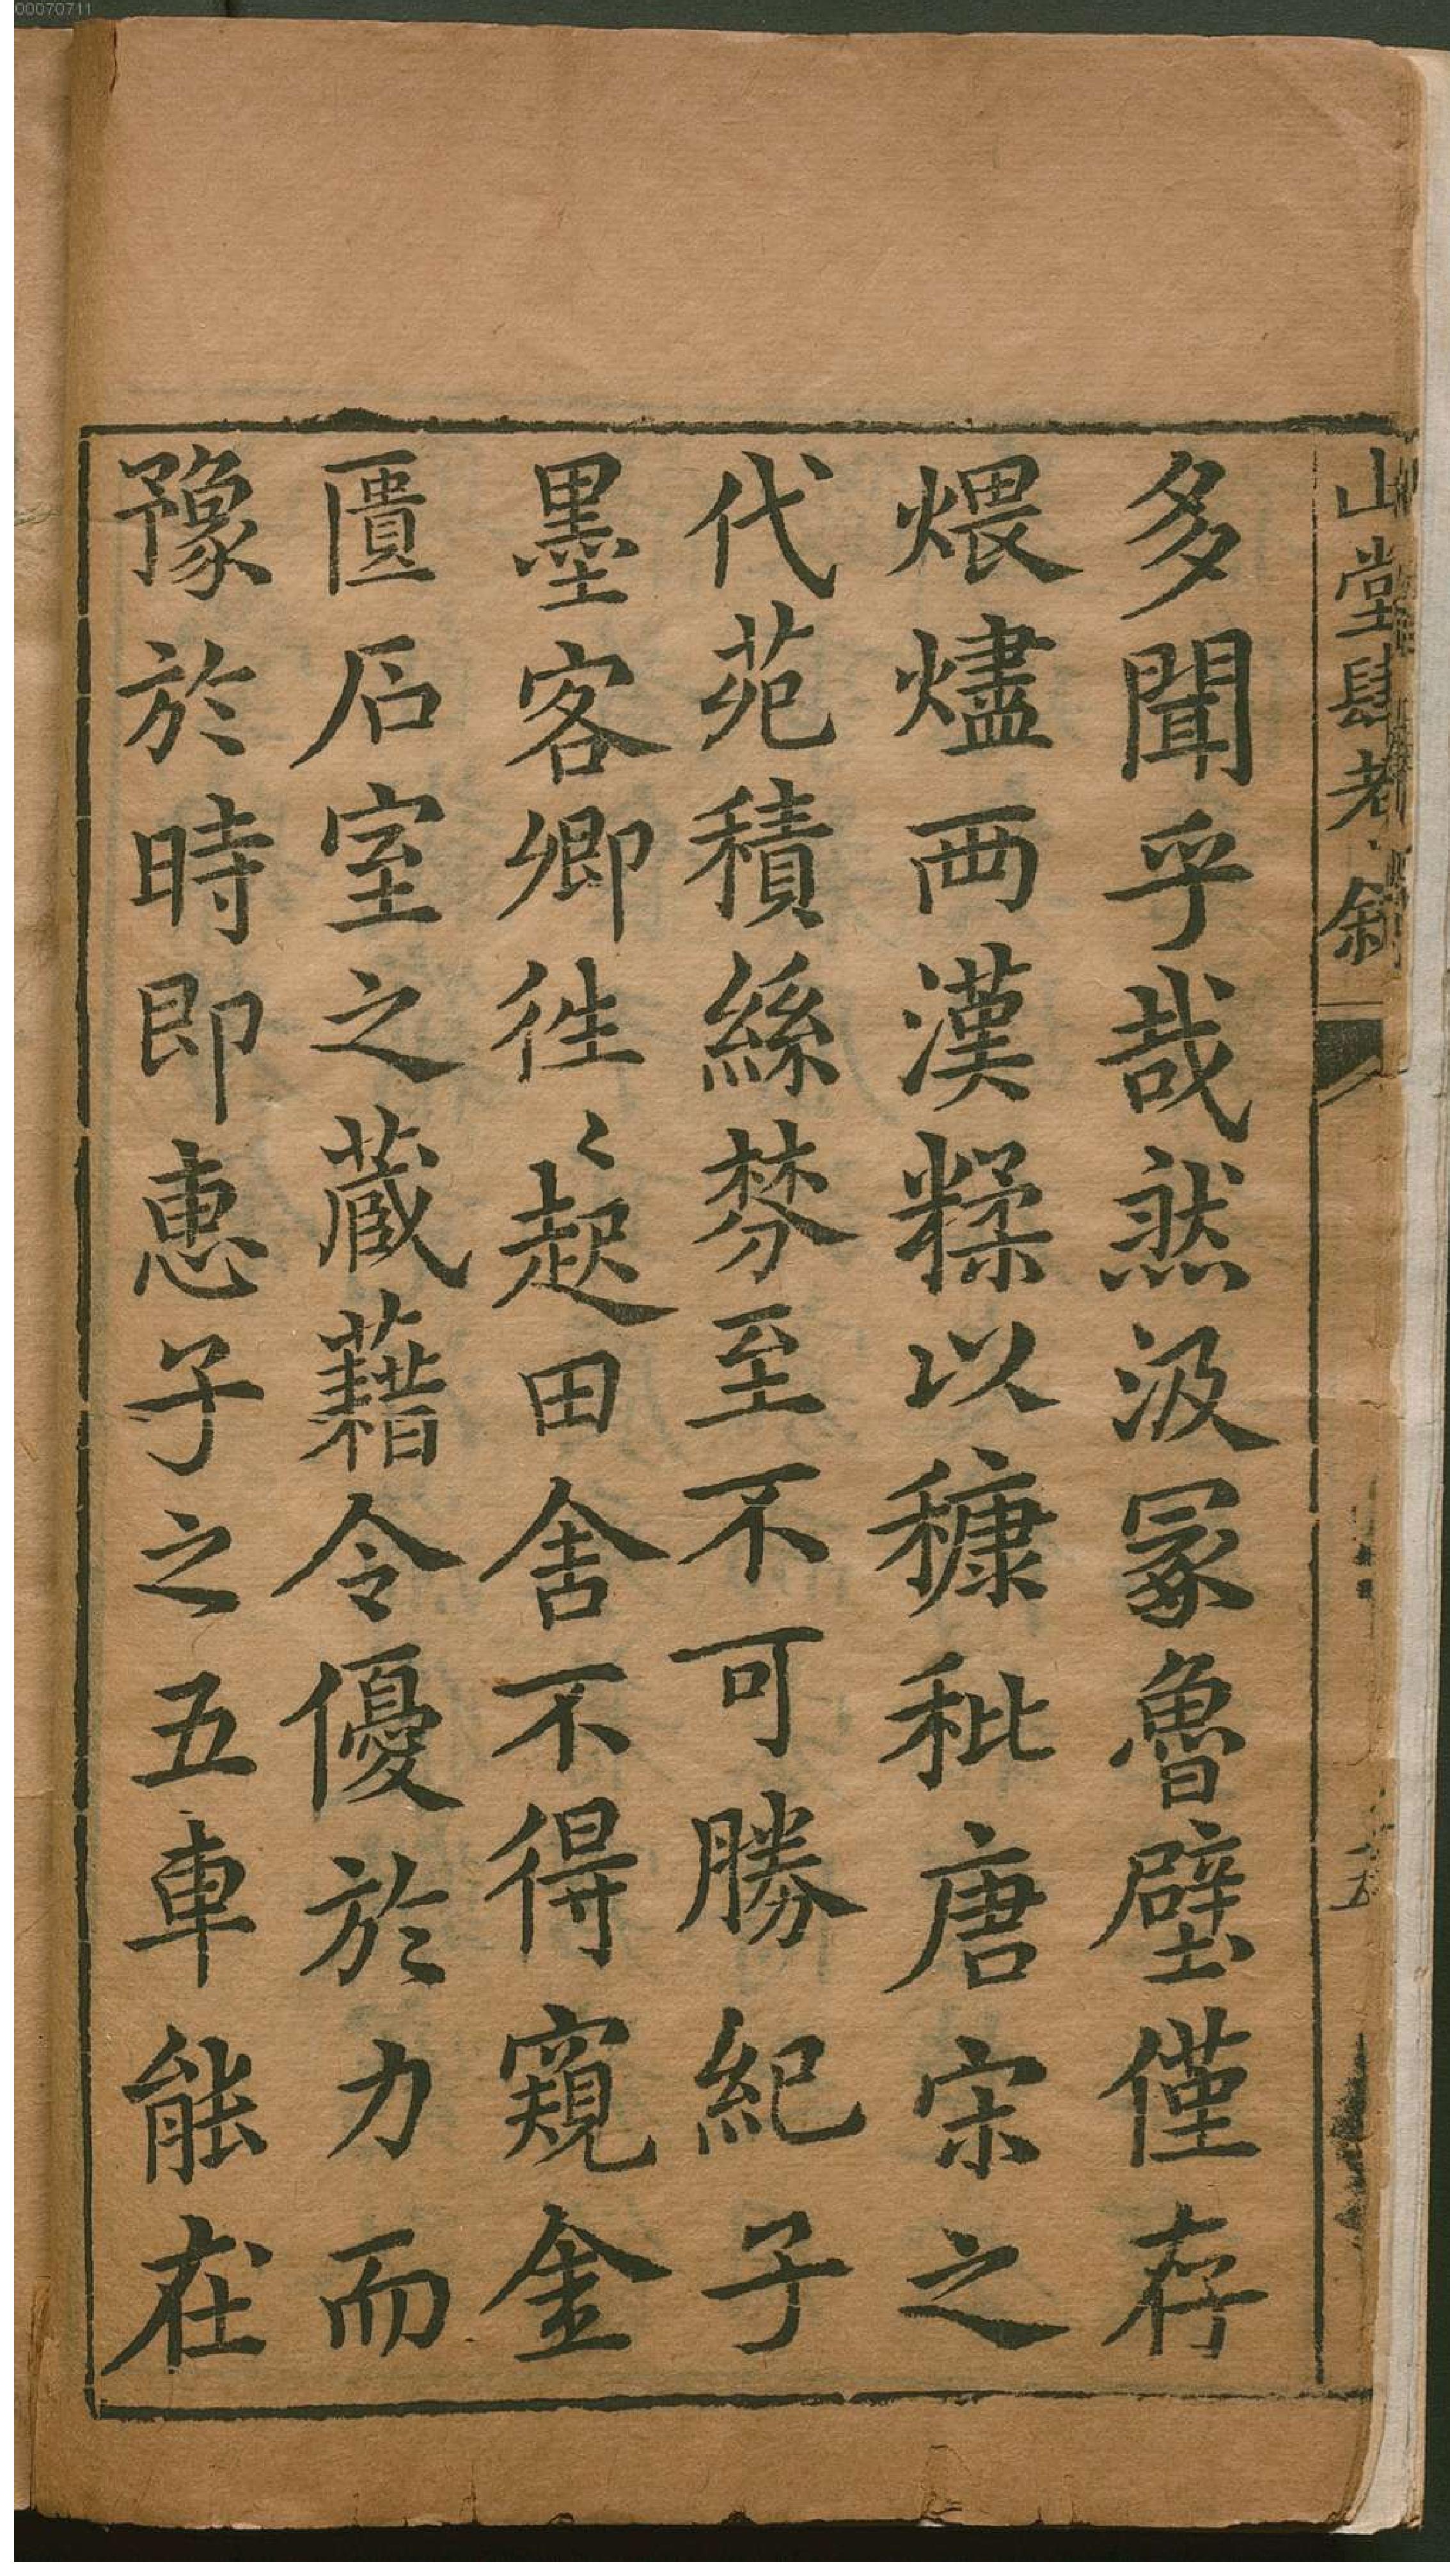 00070711
山堂肆考 敘
五
多聞乎哉然汲冢魯壁僅存
煨燼兩漢糅以穅秕唐宋之
代苑積絲棼至不可勝紀子
墨客卿徃〻起田舍不得窺金
匱石室之藏藉令優於力而
豫於時即惠子之五車能在